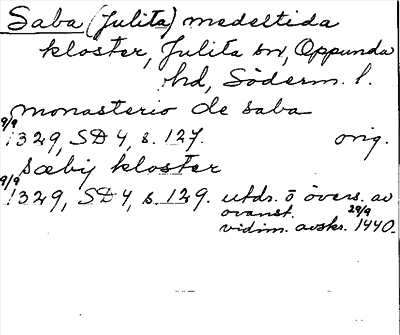 Saba (Julita) medeltida
kloster, Julita sn, Oppunda
hd, Söderm. l.
monasterio de saba
9/9 1329, SD 4, s. 127. orig.
sæbij kloster
9/9 1329, SD 4, s. 129. utdr. o övers. av
ovanst.
vidim. avskr. 29/9 1440.